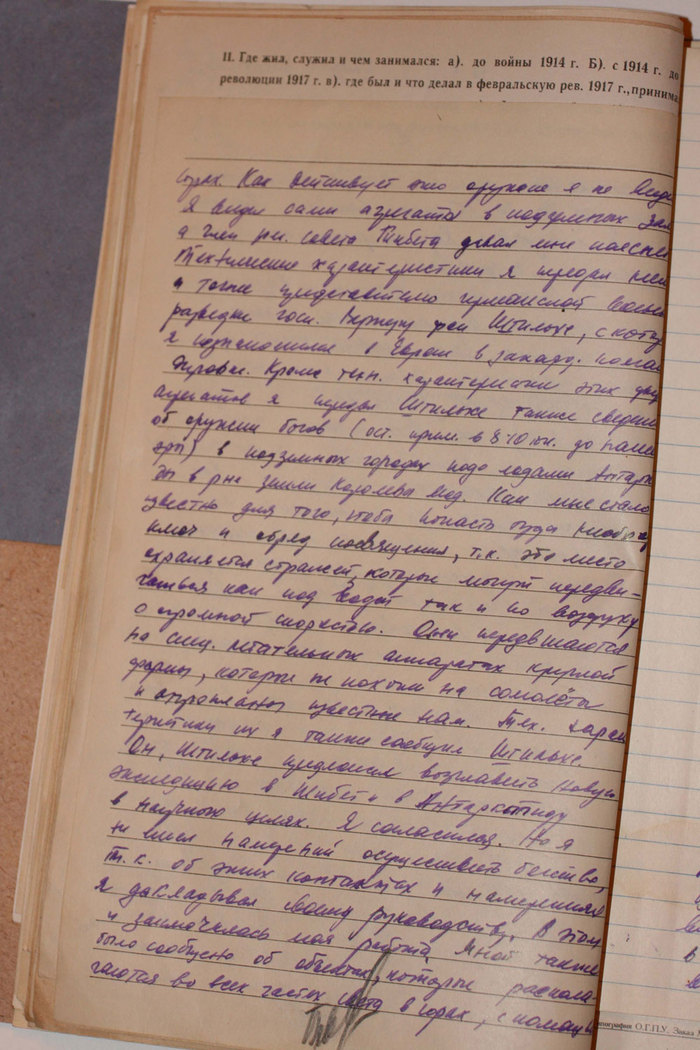 II. Где жил, служил и чем занимался: а). до войны 1914 г. Б). с 1914 г. до
революции 1917 г. в). где был и что делал в февральскую рев. 1917 г., принима
страх. Как действует это оружие я не виде
Я видел сами агрегаты в подземных зал
а член рел. совета Тибета давал мне поясне
Технические характеристики я передал
а также представителю германской
разведки госп. фон Штильхе, с кото
я познакомился в Европе в западн.
Кроме техн. характеристик этих
агрегатов я передал Штильхе также сведени
об оружии богов (ост. прим. в 8-10 к. до нашей
эры) в подземных городах подо льдами Антарк
ды в р-не земли Королевы Мод. Как мне стало
известно для того, чтобы попасть туда необход
ключ и обряд посвящения, т.к. это место
охраняется стражей, которые могут передви-
гаться как под водой так и по воздуху
с огромной скоростью. Они передвигаются
на спец. летательных аппаратах круглой
формы, которые не похожи на самолёты
и аэропланы известные нам. Тех. харак
теристики их я также сообщил Штильхе.
Он, Штильхе предложил возглавить новую
экспедицию в Тибет и в Антарктиду
в научных целях. Я согласился. Но я
не имел намерений осуществить бегство,
т.к. об этих контактах и намерениях
я докладывал своему руководству. В этом
и заключалась моя работа. Мной также
было сообщено об объектах, которые распола-
гаются во всех частях света в горах, с помощ
типография О.Г.П.У. Заказ